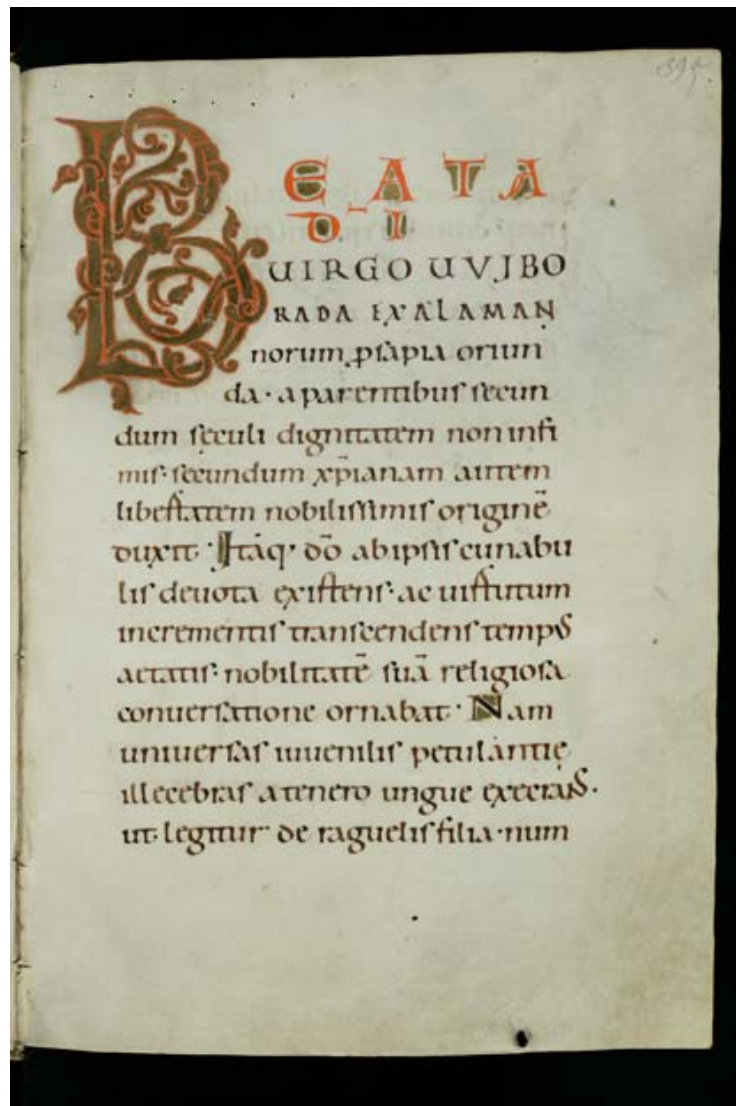 395.
BEATA
D̄I
UIRGO UVIBO
RADA EX ALAMAN
norum ꝓsapia oriun
da · a parentibus secun
dum seculi dignitatem non infi
mis · secundum xp̄ianam autem
libertatem nobilissimis originē
duxit · Itaq; dō ab ipsis cunabu
lis deuota existens · ac uirtutum
incrementis transcendens temp̄s
aetatis · nobilitatē suā religiosa
conuersatione ornabat · Nam
uniuersas iuuenilis petulantię
illecebras a tenero ungue execrans ·
ut legitur de raguelis filia · num